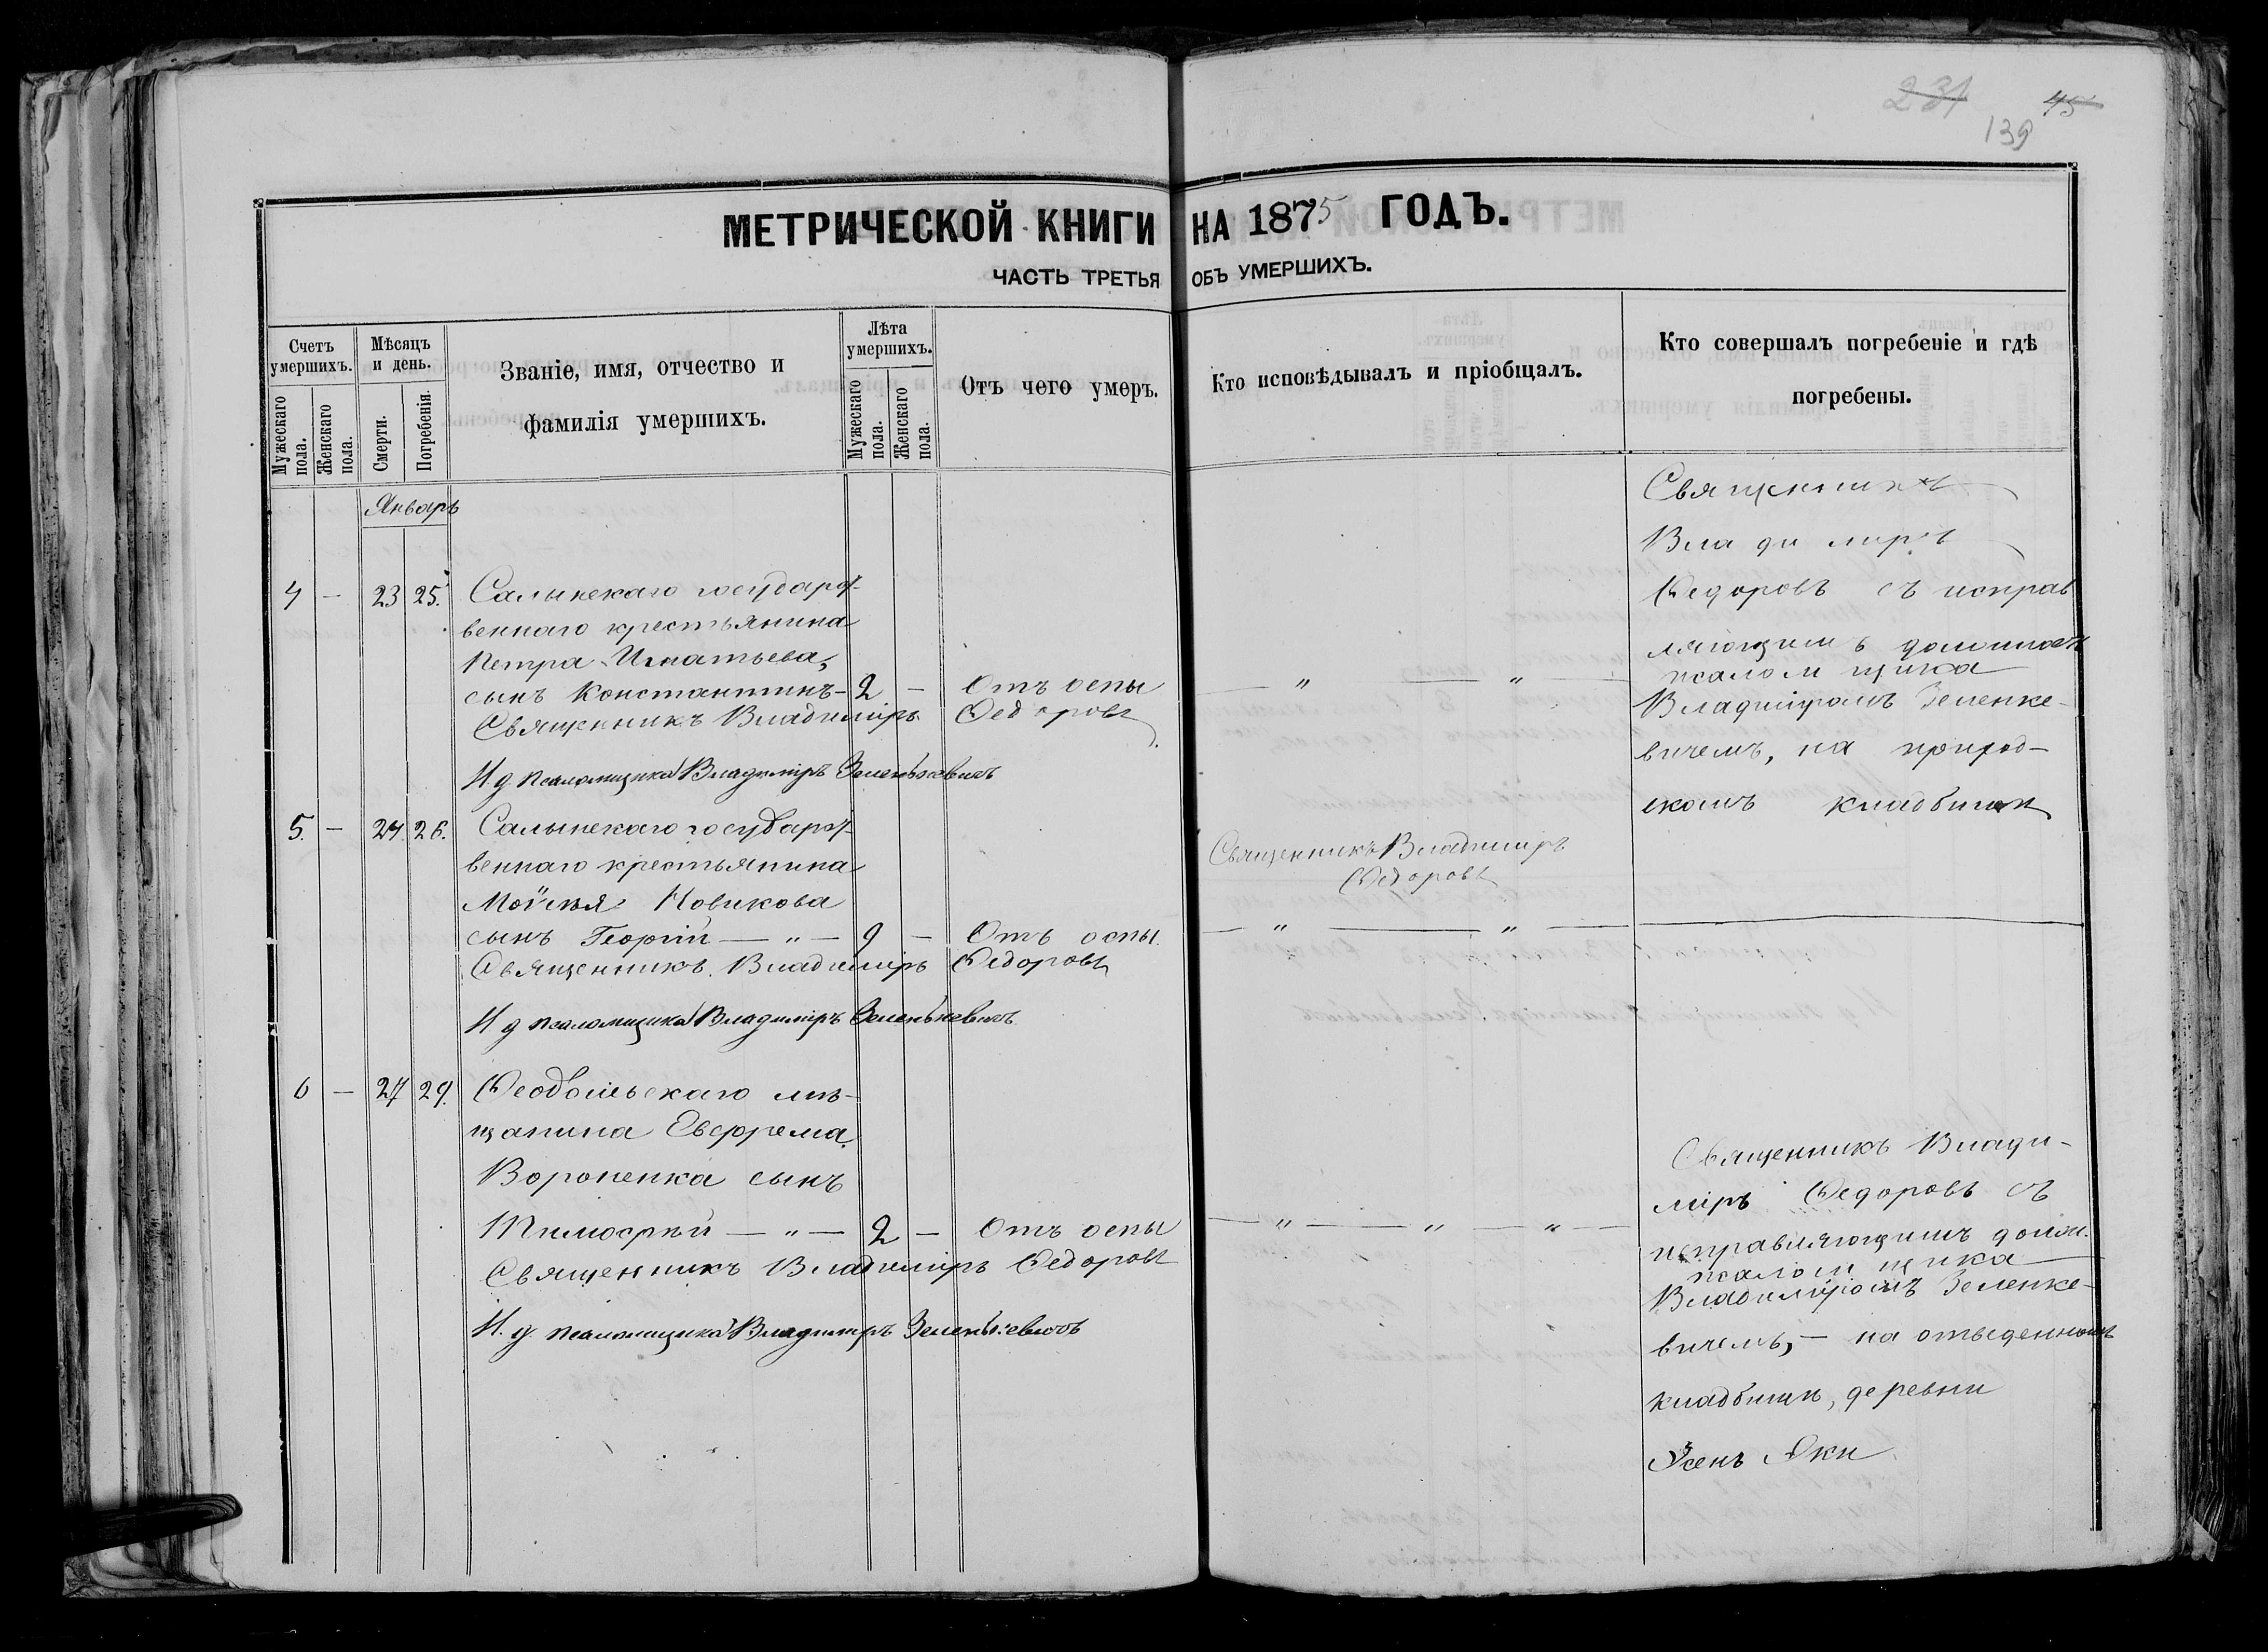 231 45
139
МЕТРИЧЕСКОЙ КНИГИ НА 1875 ГОДЪ.
ЧАСТЬ ТРЕТЬЯ ОБЪ УМЕРШИХЪ.
Счетъ умершихъ.
Мужескаго пола.
Женскаго пола.
Мѣсяцъ и день.
Смерти.
Погребенія.
Званіе, имя, отчество и
фамилія умершихъ.
Лѣта умершихъ.
Мужескаго пола.
Женскаго пола.
Отъ чего умеръ.
Кто исповѣдывалъ и пріобщалъ.
Кто совершалъ погребеніе и гдѣ
погребены.
Январь
4 — 23 25. Салынскаго государст-
веннаго крестьянина
Петра Игнатьева,
сынъ Константинъ — 2 — Отъ оспы — " — " —
Священникъ Владиміръ Ѳедоровъ
И д псаломщика Владиміръ Зеленкевичъ
Священникъ
Владиміръ
Ѳедоровъ съ исправ
ляющимъ должность
псаломщика
Владиміромъ Зеленке-
вичемъ, на приход-
скомъ кладбищѣ
5. — 24 26. Салынскаго государст-
веннаго крестьянина
Моѵсея Новикова
сынъ Георгій — " — 9 — Отъ оспы. — " — " —
Священникъ Владиміръ Ѳедоровъ
И д псаломщика Владиміръ Зеленкевичъ
Священникъ Владиміръ
Ѳедоровъ
6 — 27 29. Ѳеодосійскаго мѣ-
щанина Евфрема
Вороненка сынъ
Тимоѳей — " — 2 — Отъ оспы — " — " — " —
Священникъ Владиміръ Ѳедоровъ
И. д. псаломщика Владиміръ Зеленкевичъ
Священникъ Влади-
міръ Ѳедоровъ съ
исправляющимъ долж.
псаломщика
Владиміромъ Зеленке-
вичемъ, — на отведенномъ
кладбищѣ, деревни